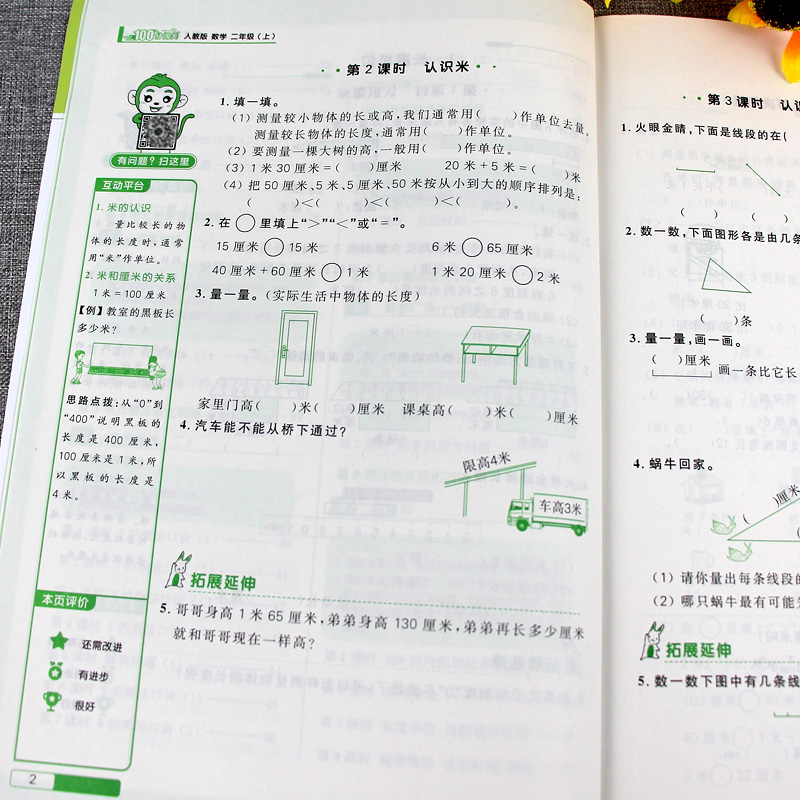 人教版 数学 二年级（上）
··第2课时 认识米··
有问题？扫这里
1. 填一填。
（1）测量较小物体的长或高，我们通常用（ ）作单位去量，
测量较长物体的长度，通常用（ ）作单位。
（2）要测量一棵大树的高，一般用（ ）作单位。
（3）1米30厘米＝（ ）厘米 20米＋5米＝（ ）米
（4）把50厘米、5米、5厘米、50米按从小到大的顺序排列是：
（ ）＜（ ）＜（ ）＜（ ）。
2. 在○里填上“＞”“＜”或“＝”。
15厘米○15米 6米○65厘米
40厘米＋60厘米○1米 1米20厘米○2米
3. 量一量。（实际生活中物体的长度）
家里门高（ ）米（ ）厘米 课桌高（ ）米（ ）厘米
4. 汽车能不能从桥下通过？
限高4米
车高3米
拓展延伸
5. 哥哥身高1米65厘米，弟弟身高130厘米，弟弟再长多少厘米
就和哥哥现在一样高？
互动平台
1. 米的认识
量比较长的物
体的长度时，通常
用“米”作单位。
2. 米和厘米的关系
1米＝100厘米
【例】教室的黑板长
多少米？
思路点拨：从“0”到
“400”说明黑板的
长度是400厘米，
100厘米是1米，所
以黑板的长度是
4米。
本页评价
还需改进
有进步
很好
2
··第3课时 认识
1. 火眼金睛，下面是线段的在（
（ ） （ ）
2. 数一数，下面图形各是由几条
（ ）条
3. 量一量，画一画。
（ ）厘米
画一条比它长
4. 蜗牛回家。
（ ）厘米
（
（1）请你量出每条线段的
（2）哪只蜗牛最有可能先
拓展延伸
5. 数一数下图中有几条线